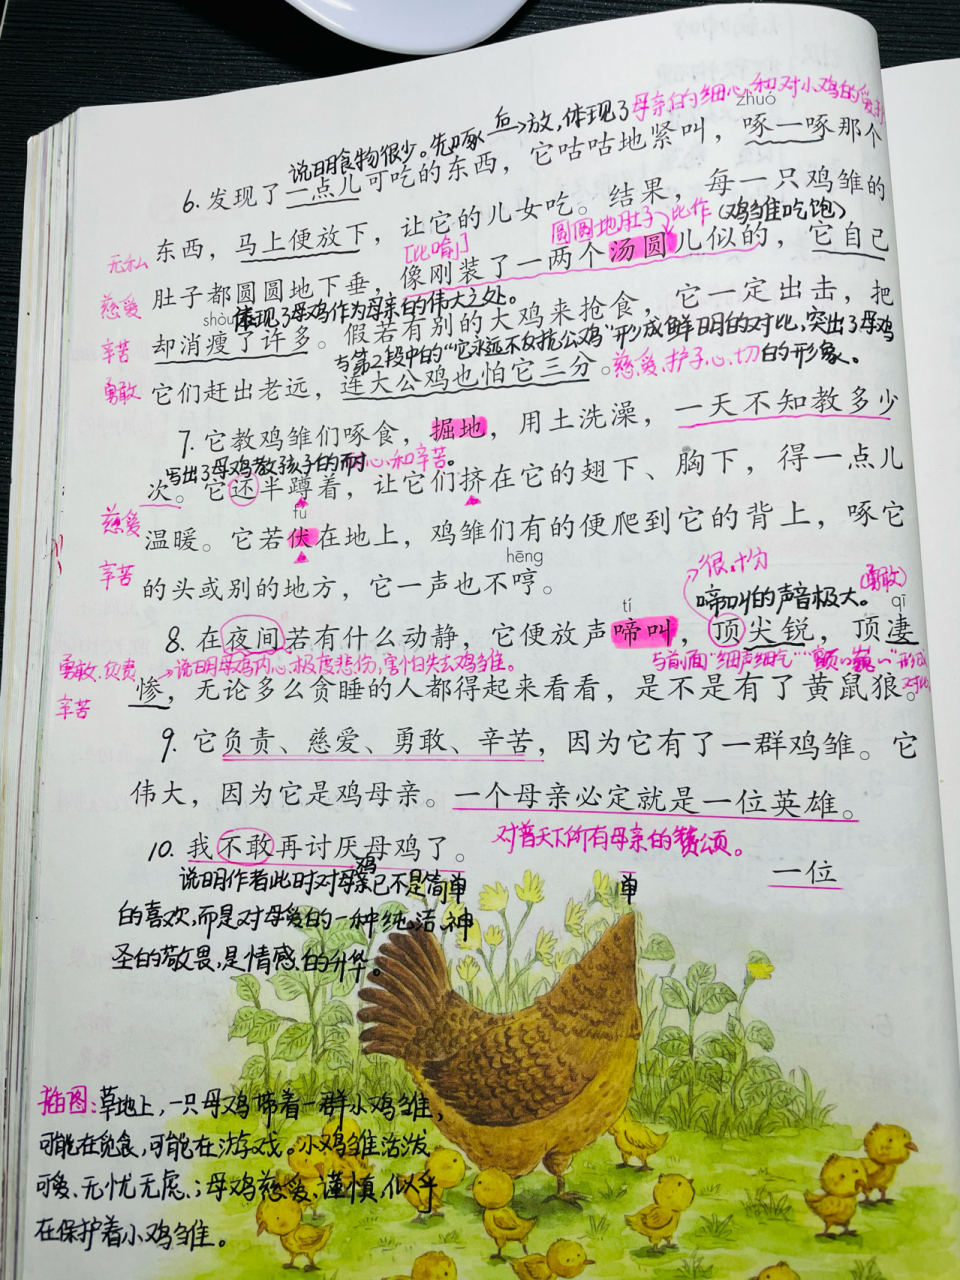 说明食物很少。先啄后→放,体现了母亲的细心和对小鸡的爱护
zhuó
6. 发现了一点儿可吃的东西,它咕咕地紧叫,啄一啄那个
圆圆地肚子 比作 (鸡雏吃饱)
东西,马上便放下,让它的儿女吃。结果,每一只鸡雏的
无私 [比喻]
肚子都圆圆地下垂,像刚装了一两个汤圆儿似的,它自己
慈爱 体现了母鸡作为母亲的伟大之处。
shòu
却消瘦了许多。假若有别的大鸡来抢食,它一定出击,把
辛苦 与第2段中的“它永远不反抗公鸡”形成鲜明的对比,突出了母鸡
它们赶出老远,连大公鸡也怕它三分。慈爱、护子心切的形象。
勇敢
7. 它教鸡雏们啄食,掘地,用土洗澡,一天不知教多少
写出了母鸡教孩子的耐心和辛苦。
次。它还半蹲着,让它们挤在它的翅下、胸下,得一点儿
慈爱 fú
温暖。它若伏在地上,鸡雏们有的便爬到它的背上,啄它
辛苦 hēng
的头或别的地方,它一声也不哼。
很,十分
啼叫的声音极大。(勇敢)
tí qī
8. 在夜间若有什么动静,它便放声啼叫,顶尖锐,顶凄
勇敢、负责 →说明母鸡内心极度悲伤,害怕失去鸡雏。 与前面“细声细气”“颤颤巍巍”形成对比
惨,无论多么贪睡的人都得起来看看,是不是有了黄鼠狼。
辛苦
9. 它负责、慈爱、勇敢、辛苦,因为它有了一群鸡雏。它
伟大,因为它是鸡母亲。一个母亲必定就是一位英雄。
10. 我不敢再讨厌母鸡了。 对普天下所有母亲的赞颂。
一位
说明作者此时对母鸡已不是简单 单
的喜欢,而是对母爱的一种纯洁、神
圣的敬畏,是情感的升华。
插图:草地上,一只母鸡带着一群小鸡雏,
可能在觅食,可能在游戏。小鸡雏活泼
可爱、无忧无虑;母鸡慈爱、谨慎,似乎
在保护着小鸡雏。